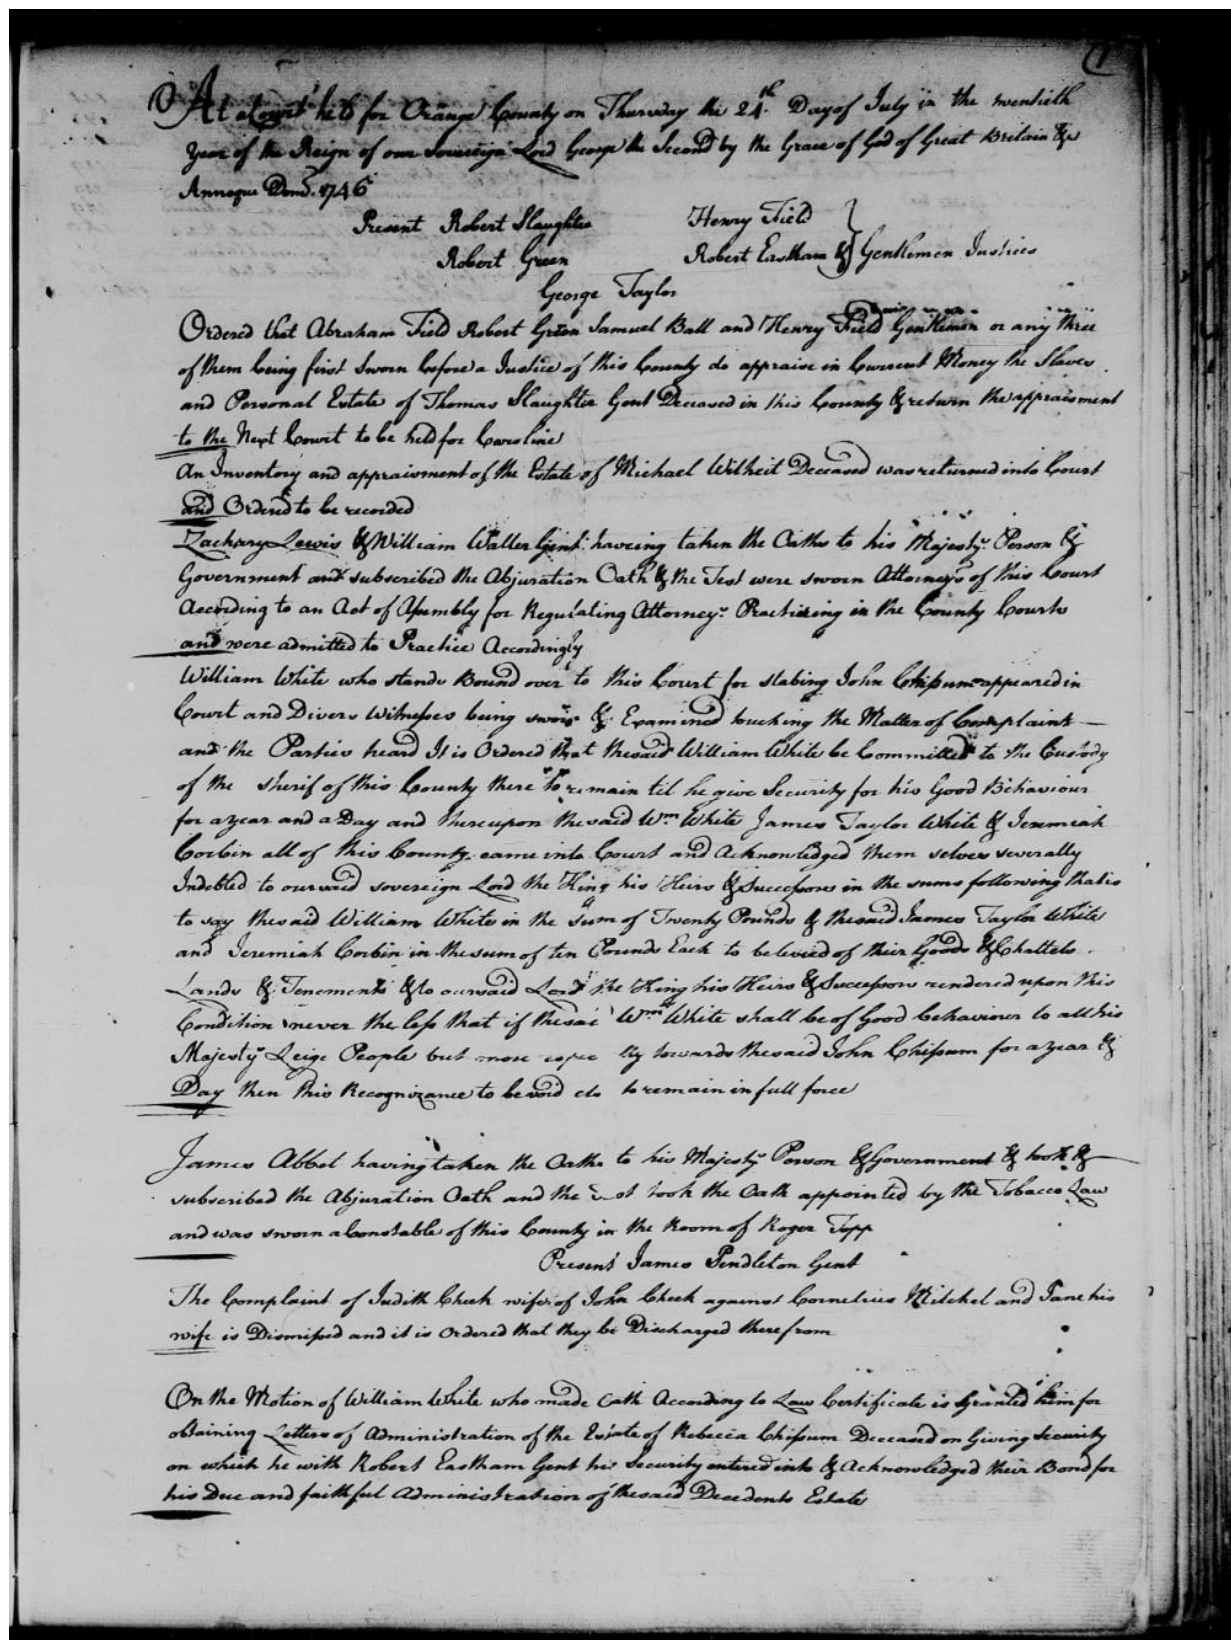 1
At a Court held for Orange County on Thursday the 24th Day of July in the twentieth
Year of the Reign of our Sovereign Lord George the Second by the Grace of God of Great Britain &c
Annoque Domo. 1746
Present Robert Slaughter Henry Field
Robert Green Robert Eastham & Gentlemen Justices
George Taylor
Ordered that Abraham Field Robert Green Samuel Ball and Henry Field Gentlemen or any three
of them being first Sworn before a Justice of this County do appraise in Current Money the Slaves
and Personal Estate of Thomas Slaughter Gent Deceased in this County & return the appraisment
to the Next Court to be held for Caroline
An Inventory and appraisment of the Estate of Michael Wilheit Deceased was returned into Court
and Ordered to be recorded
Zachary Lewis & William Waller Gent. haveing taken the Oaths to his Majestys. Person &
Government and subscribed the Abjuration Oath & the Test were sworn Attorneys of this Court
According to an Act of Assembly for Regulating Attorneys. Practiceing in the County Courts
and were admitted to Practice Accordingly
William White who stands Bound over to this Court for stabing John Chissum appeared in
Court and Divers Witnesses being sworn & Examined touching the Matter of Complaint
and the Parties heard It is Ordered that the said William White be Committed to the Custody
of the Sherif of this County there to remain til he give Security for his Good Behaviour
for a year and a Day and thereupon the said Wm White James Taylor White & Jeremiah
Corbin all of this County came into Court and Acknowledged them selves severally
Indebted to our said sovereign Lord the King his Heirs & Successors in the sums following that is
to say the said William White in the Sum of Twenty Pounds & the said James Taylor White
and Jeremiah Corbin in the sum of ten Pounds Each to be levied of their Goods & Chattels
Lands & Tenements & to our said Lord the King his Heirs & Successors rendered upon this
Condition never the less that if the said Wm White shall be of Good behaviour to all his
Majestys Leige People but more espec lly towards the said John Chissum for a year &
Day then this Recognizance to be void to remain in full force
James Abbot having taken the Oaths to his Majestys Person & Government & took &
subscribed the Abjuration Oath and the took the Oath appointed by the Tobacco Law
and was sworn a Constable of this County in the Room of Roger Topp
Present James Pendleton Gent
The Complaint of Judith Cheek wife of John Cheek against Cornelius Mitchel and Jane his
wife is Dismissed and it is Ordered that they be Discharged therefrom
On the Motion of William White who made Oath According to Law Certificate is Granted him for
obtaining Letters of Administration of the Estate of Rebecca Chissum Deceased on Giving Security
on which he with Robert Eastham Gent his Security entered into & Acknowledged their Bond for
his Due and faithful Administration of the said Decedents Estate